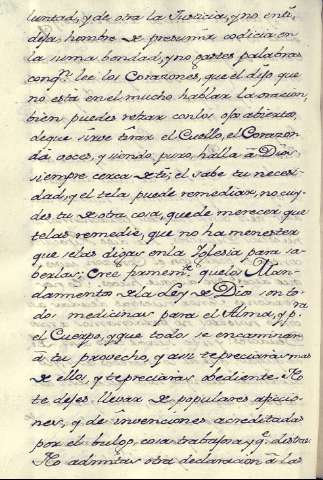 luntad, y de otra la Justicia, y no enti,
desa, hombre de presumir codicia en
la suma bondad, y no gastes palabras
conqn. lee los Corazones, que el dijo que
no està en el mucho hablar la oracion,
bien puedes rezar con los ojos abiertos,
deque sirve tirar el Cuello, el Corazon
dà voces, y siendo puro, halla à Dios
siempre cerca de ti; el sabe tu neces-
dad, y el tela puede remediar, no cuy-
des tu de otra cosa, que de merecer que
telas remedie, que no ha menester
que selas digas en la Iglesia para sa-
berlas; Cree firmemte. que los Man-
damientos de la Ley de Dios son to-
dos medicinas para el Alma, y pra.
el Cuerpo, y que todo se encamina
à tu provecho, y asi te preciaràs mas
de ello, y te preciaràs obediente. No
te dejes llevar de populares aficio-
nes, y de invenciones acreditadas
por el bulgo, cosa trabajosa, y q.
No admitas otra declaracion à las